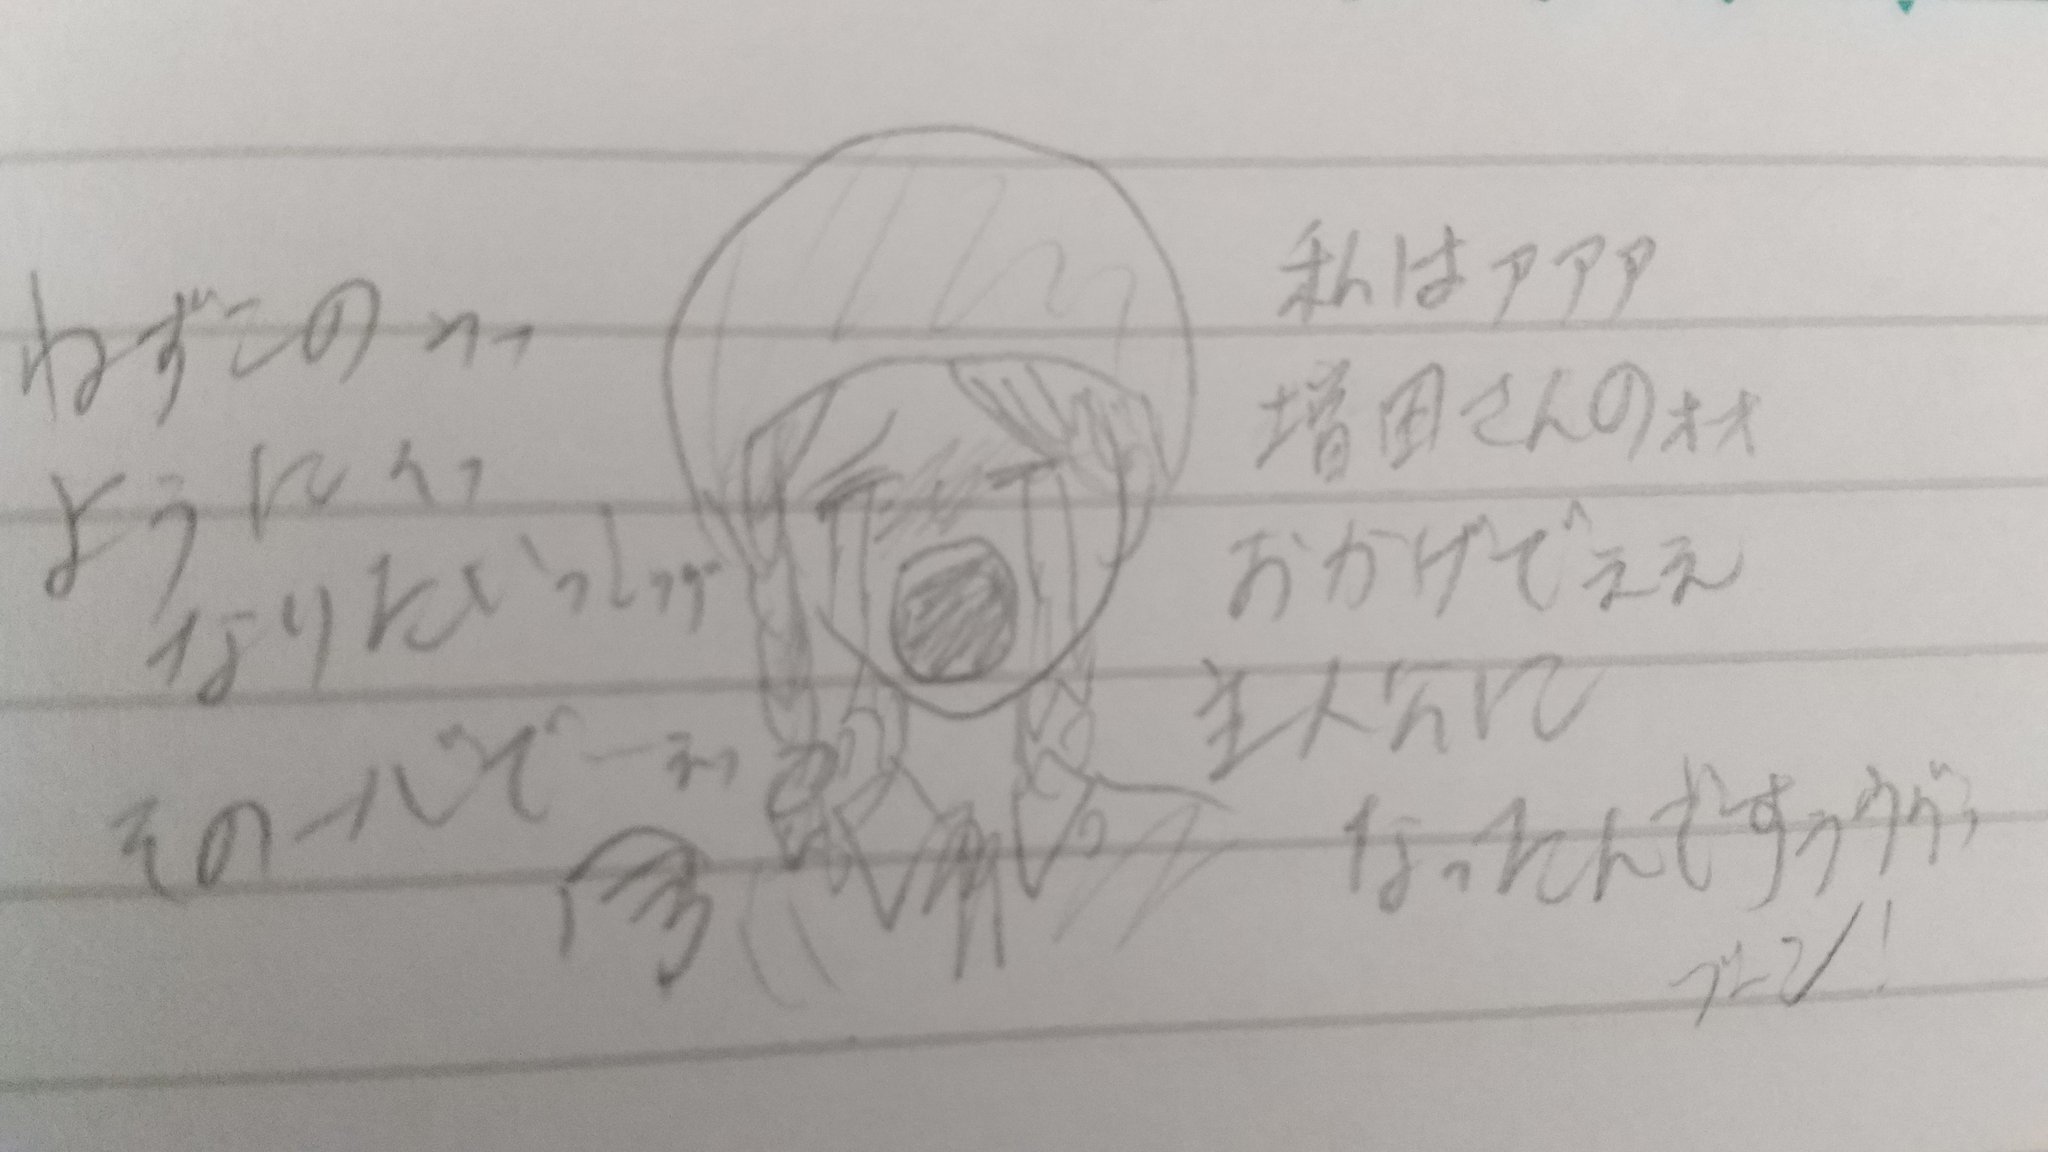 私はァアア
増田さんのォオ
おかげでぇえ
主人公に
なったんですぅヴヴッ
ブーン!
ねずこのッ
ようにッ
なりたいっ
その一心でーぇっ